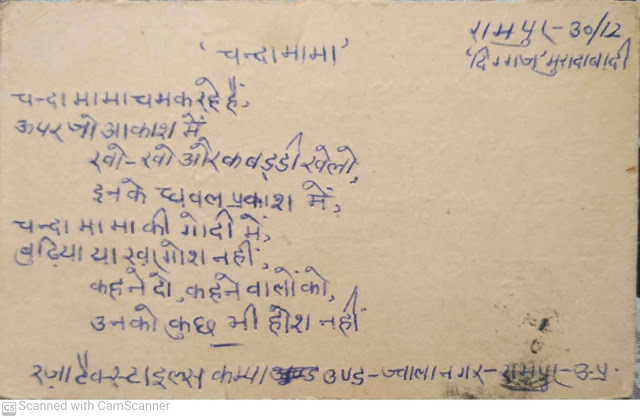 रामपुर-30/12
'चन्दा मामा'
'दिग्गज' मुरादाबादी
चन्दा मामा चमक रहे हैं,
ऊपर जो आकाश में,
खो-खो और कबड्डी खेलो,
इनके धवल प्रकाश में,
चन्दा मामा की गोदी में,
बुढ़िया या खरगोश नहीं,
कहने दो, कहने वालों को,
उनको कुछ भी होश नहीं
रज़ा टैक्स्टाइल्स कम्पाउण्ड-ज्वालानगर-रामपुर-उ.प्र.
CS Scanned with CamScanner